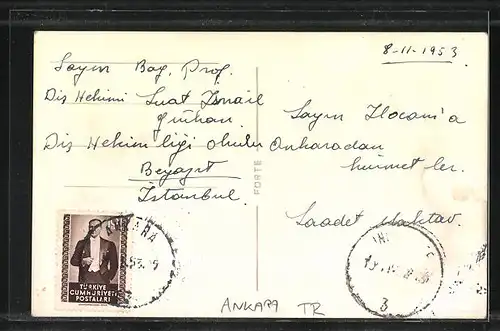 8-11-1953
Sayın Bay, Prof.
Diş Hekimi Suat İsmail
Gürkan.
Diş Hekimliği okulu
Beyazıt
İstanbul.
Sayın Hocam'a
Ankaradan
hürmetler.
Saadet
FORTE
ANKARA
TÜRKİYE
CUMHURİYETİ
POSTALARI
3
ANKARA TR